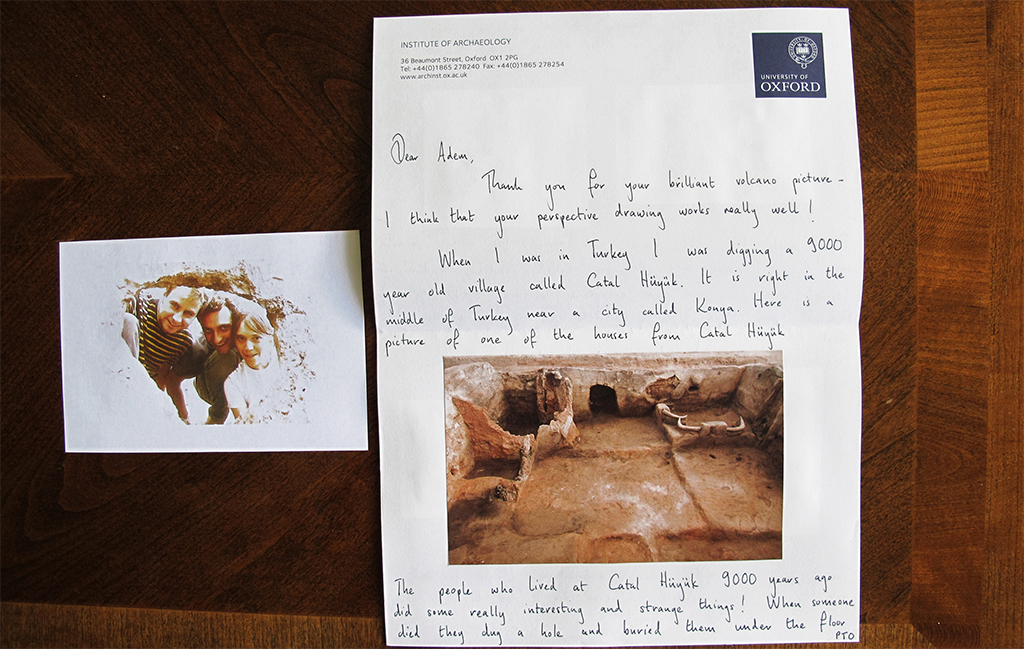 INSTITUTE OF ARCHAEOLOGY
36 Beaumont Street, Oxford OX1 2PG
Tel: +44(0)1865 278240 Fax: +44(0)1865 278254
www.archinst.ox.ac.uk
UNIVERSITY OF
OXFORD
Dear Adem,
Thank you for your brilliant volcano picture -
I think that your perspective drawing works really well!
When I was in Turkey I was digging a 9000
year old village called Catal Hüyük. It is right in the
middle of Turkey near a city called Konya. Here is a
picture of one of the houses from Catal Hüyük
The people who lived at Catal Hüyük 9000 years ago
did some really interesting and strange things! When someone
died they dug a hole and buried them under the floor
PTO